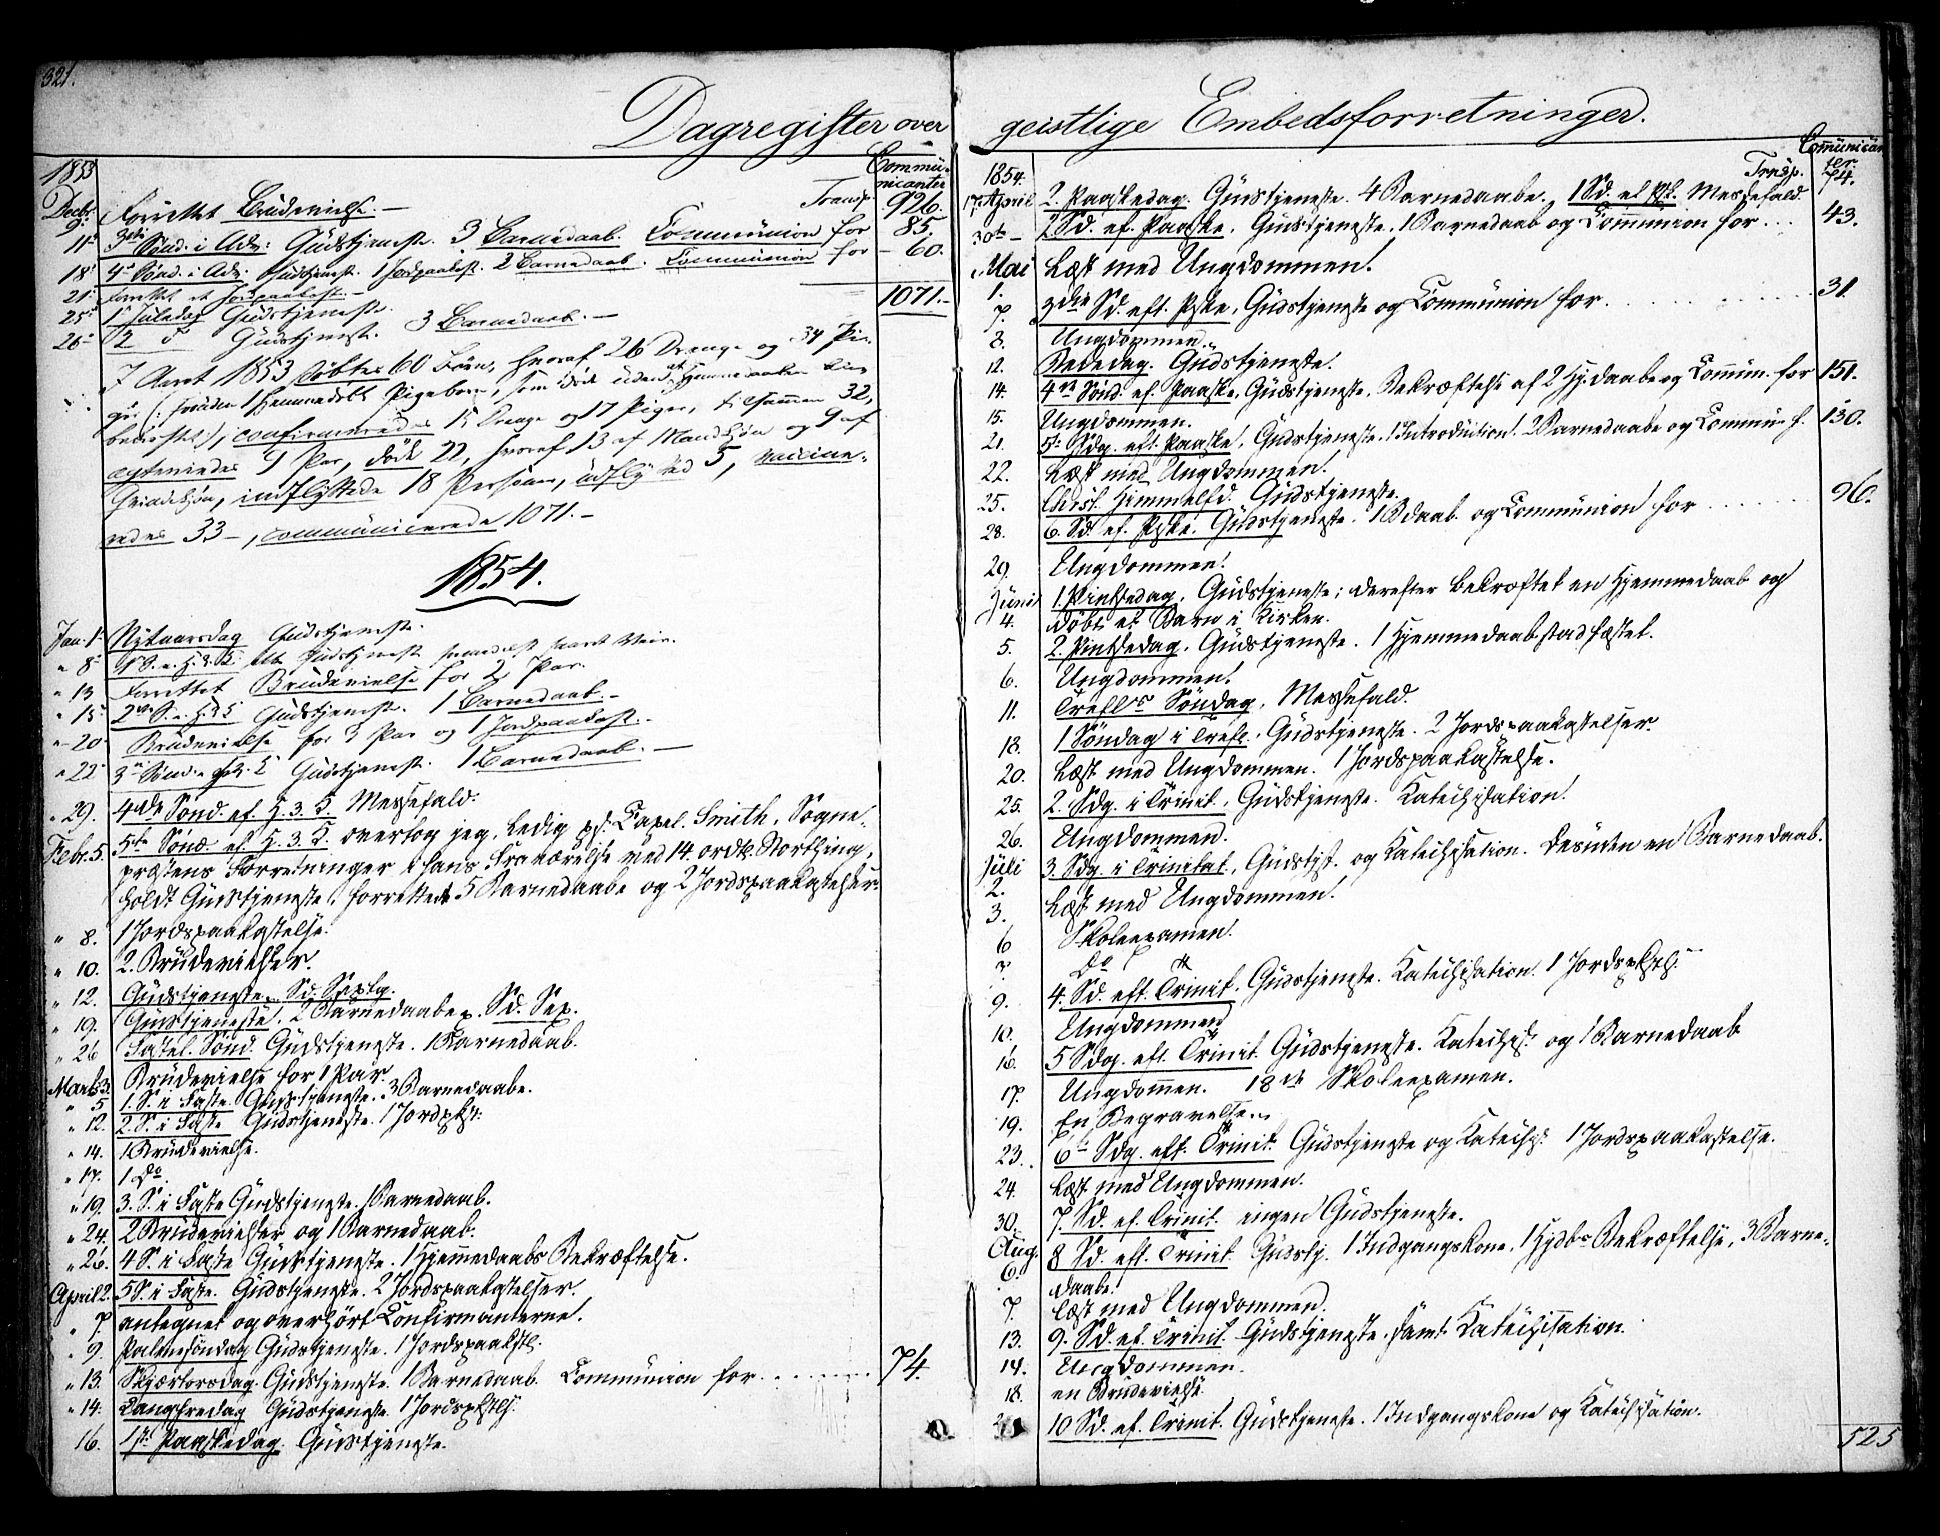 321.
Dagregister over
1853
Commu-
nicanter
Decbr.
9. Forrettet Brudevielse. — Transp. 926.
11te 3die Sønd. i Adv: Gudstjeneste. 3 Barnedaab. Communion for 85.
18de 4de Sønd. i Adv. Gudstjenst. 1 Jordpaakast. 2 Barnedaab. Communion for — 60.
21de Forrettet et Jordpaakast. — 1071.—
25de 1ste Juledag Gudstjeneste.
26de 2 — Gudstjeneste. 3 Barnedaab. —
I Aaret 1853 døbtes 60 Børn, hvoraf 26 Drenge og 34 Pi-
ger (: foruden 1 hjemmedøbt Pigebarn, som døde uden at Hjemmedaaben blev
bekræftet), confirmeredes 15 Drenge og 17 Piger, tilsammen 32,
egteviedes 9 Par, døde 22, hvoraf 13 af Mandkjøn og 9 af
Qvindekjøn, indflyttede 18 Personer, udflyttede 5, vaccine-
redes 33 —, communicerede 1071. —
1854.
Jan. 1ste Nytaarsdag Gudstjeneste.
" 8de 1 S. e. H. 3 K. Gudstjeneste formedelst haardt Veir.
" 13 Forrettet Brudevielse for 2 Par.
" 15 2den S. e. H. 3 K. Gudstjeneste. 1 Barnedaab. —
" 20 Brudevielse for 1 Par og 1 Jordpaakast. —
" 22 3die Sønd. e. H. 3 K. Gudstjeneste. 1 Barnedaab. —
" 29. 4de Sønd. ef. H. 3. K. Messefald.
Febr. 5. 5te Sønd. ef. H. 3. K. overtog jeg, Ledig ps. Capel. Smith, Sogne-
præstens Forretninger i hans Fraværelse ved 14. ordtl. Storthing,
holdt Gudstjeneste, forrettede 5 Barnedaabe og 2 Jordspaakastelser.
" 8. 1 Jordspaakastelse.
" 10. 2. Brudevielser.
" 12. Gudstjeneste. Sd. Septg.
" 19. Gudstjeneste. 2 Barnedaabe. Sd. Sex.
" 26 Fastel. Sønd. Gudstjeneste. 1 Barnedaab.
Marts 3. Brudevielse for 1 Par.
" 5 1. S. i Faste. Gudstjeneste. 3 Barnedaabe.
" 12. 2. S. i Faste Gudstjeneste. 1 Jordpkst.
" 14. 1 Brudevielse.
" 17. 1 Do
" 19. 3. S. i Faste Gudstjeneste. 1 Barnedaab.
" 24. 2 Brudevielser og 1 Barnedaab.
" 26. 4 S. i Faste Gudstjeneste. 1 Hjemmedaabs Bekræftelse.
April 2. 5 S. i Faste. Gudstjeneste. 2 Jordspaakastelser.
" 7. antegnet og overhørt Confirmanterne.
" 9. Palmesøndag Gudstjeneste. 1 Jordspaakstl.
" 13. Skjærtorsdag. Gudstjeneste. 1 Barnedaab. Communion for . . . . . . . 74.
" 14. Langfredag Gudstjeneste. 1 Jordspkstls.
16. 1ste Paaskedag. Gudstjeneste.
geistlige Embedsforretninger.
1854. Comunican-
ter.
Trnsp. 74.
17 April 2. Paaskedag. Gudstjeneste. 4 Barnedaabe. 1 Sd. ef. Psk. Messefald.
30te — 2 Sd. ef. Paaske. Gudstjeneste. 1 Barnedaab og Communion for . . . 43.
" Mai Læst med Ungdommen.
1.
7. 3die Sd. eft. Pske. Gudstjeneste og Communion for . . . . . . . . . 31.
8. Ungdommen.
12. Bededag. Gudstjeneste.
14. 4de Sønd. ef. Paaske. Gudstjeneste. Bekræftelse af 2 Hj.daabe og Commun. for 151.
15. Ungdommen.
21. 5te Sdg. eft. Paaske. Gudstjeneste. 1 Introduction. 2 Barnedaabe og Commun. f. 130.
22. Læst med Ungdommen.
25. Christ. Himmelfd. Gudstjeneste.
28. 6. Sd. ef. Pske. Gudstjeneste. 1 Bdaab. og Communion for . . . . . 96.
29. Ungdommen.
Juni 1. Pintsedag. Gudstjeneste; derefter bekræftet en Hjemmedaab og
4. døbt et Barn i Kirken.
5. 2. Pintsedag. Gudstjeneste. 1 Hjemmedaab stadfæstet.
6. Ungdommen.
11. Trefl.s Søndag. Messefald.
18. 1 Søndag i Trefl. Gudstjeneste. 2 Jordspaakastelser.
20. Læst med Ungdommen. 1 Jordspaakastelse.
25. 2. Sdg. i Trinit. Gudstjeneste. Katechisation.
26. Ungdommen.
Juli 3. Sdg. i Trinitat. Gudstjst. og Katechisation. Desuden en Barnedaab.
2.
3. Læst med Ungdommen.
6 Skoleexamen.
7. Do
9. 4. Sd. eft. Trinit. Gudstjeneste. Katechisation. 1 Jordspkstls.
10. Ungdommen
16. 5 Sdg. eft. Trinit. Gudstjeneste. Katechis. og 1 Barnedaab
17. Ungdommen. 18de Skoleexamen.
19. En Begravelse.
23. 6te Sdg. eft. Trinit. Gudstjeneste og Katechs. 1 Jordspaakastelse.
24. Læst med Ungdommen.
30. 7. Sd. ef. Trinit. ingen Gudstjeneste.
Aug. 8 Sd. eft. Trinit. Gudstj. 1 Indgangskone. 1 Hjdbs Bekræftelse, 3 Barne-
6. daabe.
7. Læst med Ungdommen.
13. 9. Sd. ef. Trinit. Gudstjeneste samt Katechisation.
14. Ungdommen.
18. en Brudevielse.
10 Sd. ef. Trinit. Gudstjeneste. 1 Indgangskone og Katechisation.
525